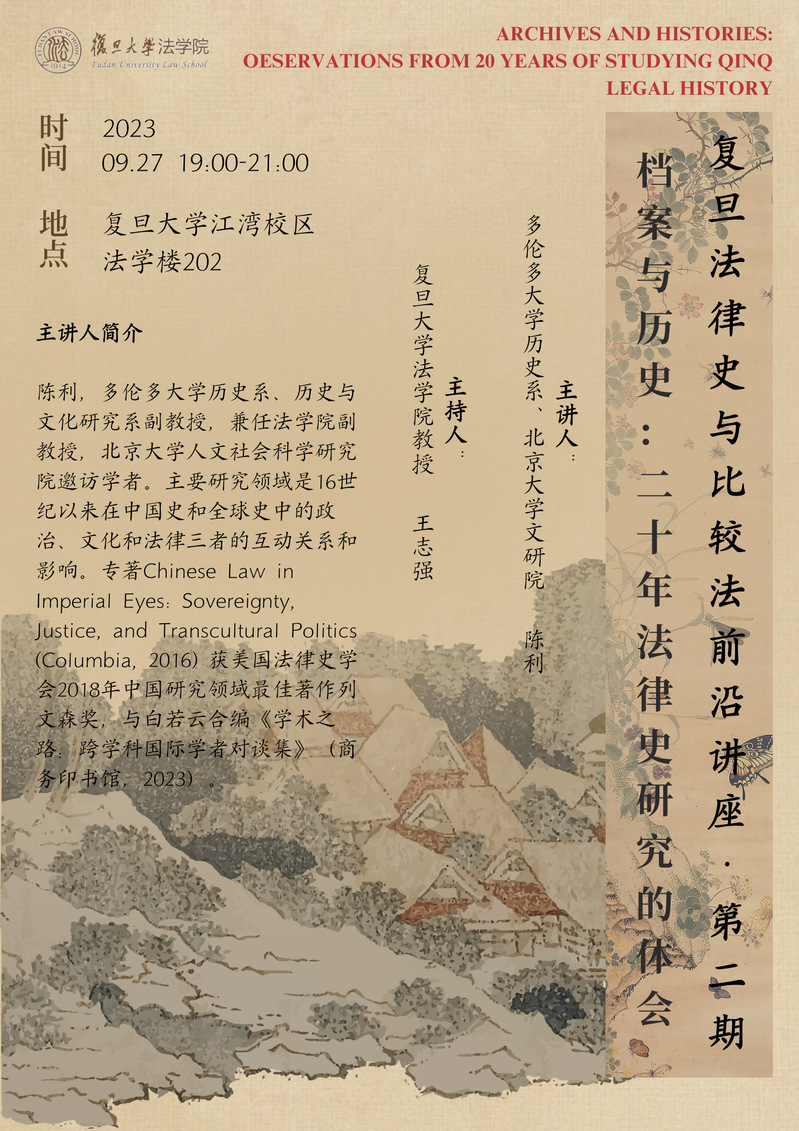 FUDAN LAW SCHOOL
1914
復旦大學法学院
Fudan University Law School
ARCHIVES AND HISTORIES:
OESERVATIONS FROM 20 YEARS OF STUDYING QINQ
LEGAL HISTORY
时间
2023
09.27 19:00-21:00
地点
复旦大学江湾校区
法学楼202
复旦法律史与比较法前沿讲座·第二期
档案与历史：二十年法律史研究的体会
主讲人：
多伦多大学历史系、北京大学文研院 陈利
主持人：
复旦大学法学院教授 王志强
主讲人简介
陈利，多伦多大学历史系、历史与
文化研究系副教授，兼任法学院副
教授，北京大学人文社会科学研究
院邀访学者。主要研究领域是16世
纪以来在中国史和全球史中的政
治、文化和法律三者的互动关系和
影响。专著Chinese Law in
Imperial Eyes: Sovereignty,
Justice, and Transcultural Politics
(Columbia, 2016) 获美国法律史学
会2018年中国研究领域最佳著作列
文森奖，与白若云合编《学术之
路：跨学科国际学者对谈集》（商
务印书馆，2023）。